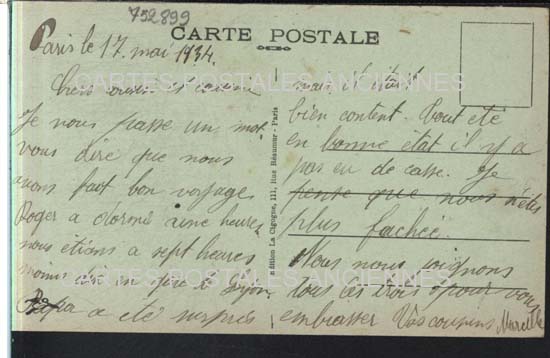 752899
CARTE POSTALE
Paris le 17. mai 1934.
Chers cousin et cousine
Je vous passe un mot
vous dire que nous
avons fait bon voyage
Roger a dormi une heure
nous étions a sept heures
moins dix en gare de Lyon
Papa a été surpris
Edition La Cigogne, 111, Rue Réaumur - Paris
mais il était
bien content. Tout été
en bonne état il y a
pas eu de casse. Je
pense que vous n'êtes
plus fachée.
Nous nous joignons
tous les trois pour vous
embrasser Vos cousins Marcelle
CARTES POSTALES ANCIENNES
CARTES POSTALES ANCIENNES